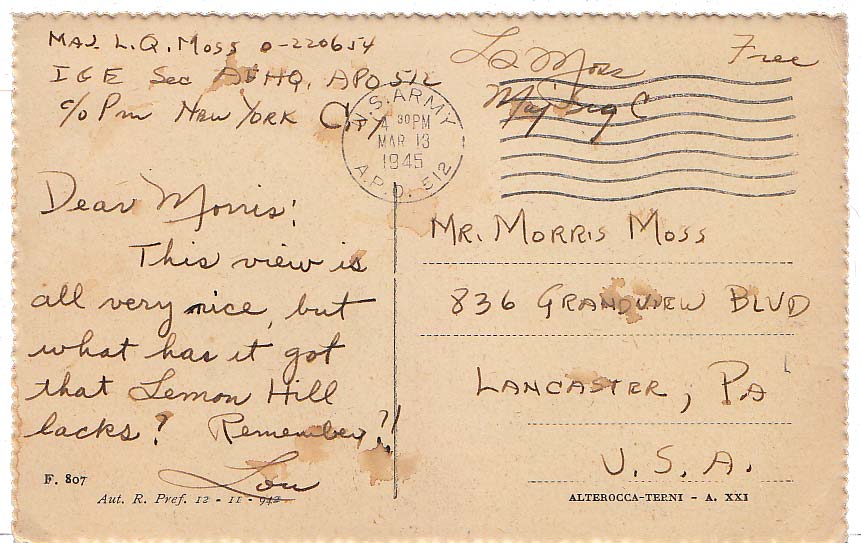 MAJ. L.Q. MOSS O-220654
I & E Sec AFHQ, APO 512
c/o PM NEW YORK City
LQ Moss
Maj Sig C
Free
U.S. ARMY
4 30PM
MAR 13
1945
A.P.O. 512
Dear Morris:
This view is
all very nice, but
what has it got
that Lemon Hill
lacks? Remember?!
Lou
MR. MORRIS MOSS
836 GRANDVIEW BLVD
LANCASTER, PA
U.S.A.
F. 807
Aut. R. Pref. 12 - 11 - 942
ALTEROCCA-TERNI - A. XXI